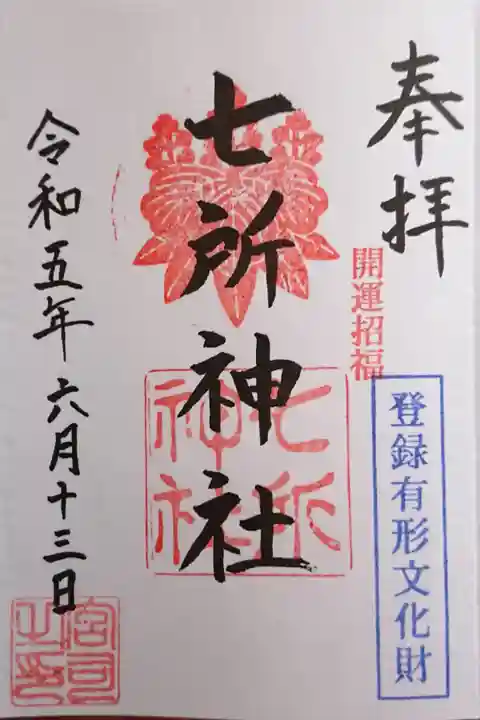 奉拝
開運招福
登録有形文化財
七所神社
七所
神社
令和五年六月十三日
宮司
之印